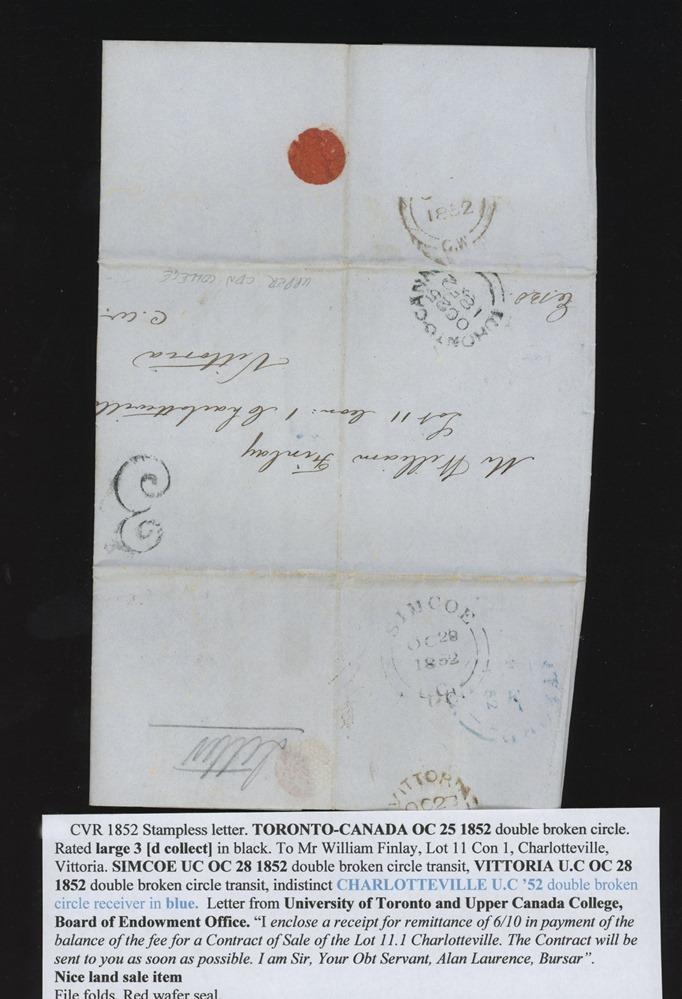 1852
C.W.
TORONTO-CANADA
OC 25
1852
UPPER CDN COLLEGE
Mr William Finlay
Lot 11 Con: 1 Charlotteville
Vittoria
C.W.
3
SIMCOE
OC 28
1852
U.C
52
Letter
VITTORIA
OC 2
CVR 1852 Stampless letter. TORONTO-CANADA OC 25 1852 double broken circle.
Rated large 3 [d collect] in black. To Mr William Finlay, Lot 11 Con 1, Charlotteville,
Vittoria. SIMCOE UC OC 28 1852 double broken circle transit, VITTORIA U.C OC 28
1852 double broken circle transit, indistinct CHARLOTTEVILLE U.C '52 double broken
circle receiver in blue. Letter from University of Toronto and Upper Canada College,
Board of Endowment Office. “I enclose a receipt for remittance of 6/10 in payment of the
balance of the fee for a Contract of Sale of the Lot 11.1 Charlotteville. The Contract will be
sent to you as soon as possible. I am Sir, Your Obt Servant, Alan Laurence, Bursar”.
Nice land sale item
File folds. Red wafer seal.